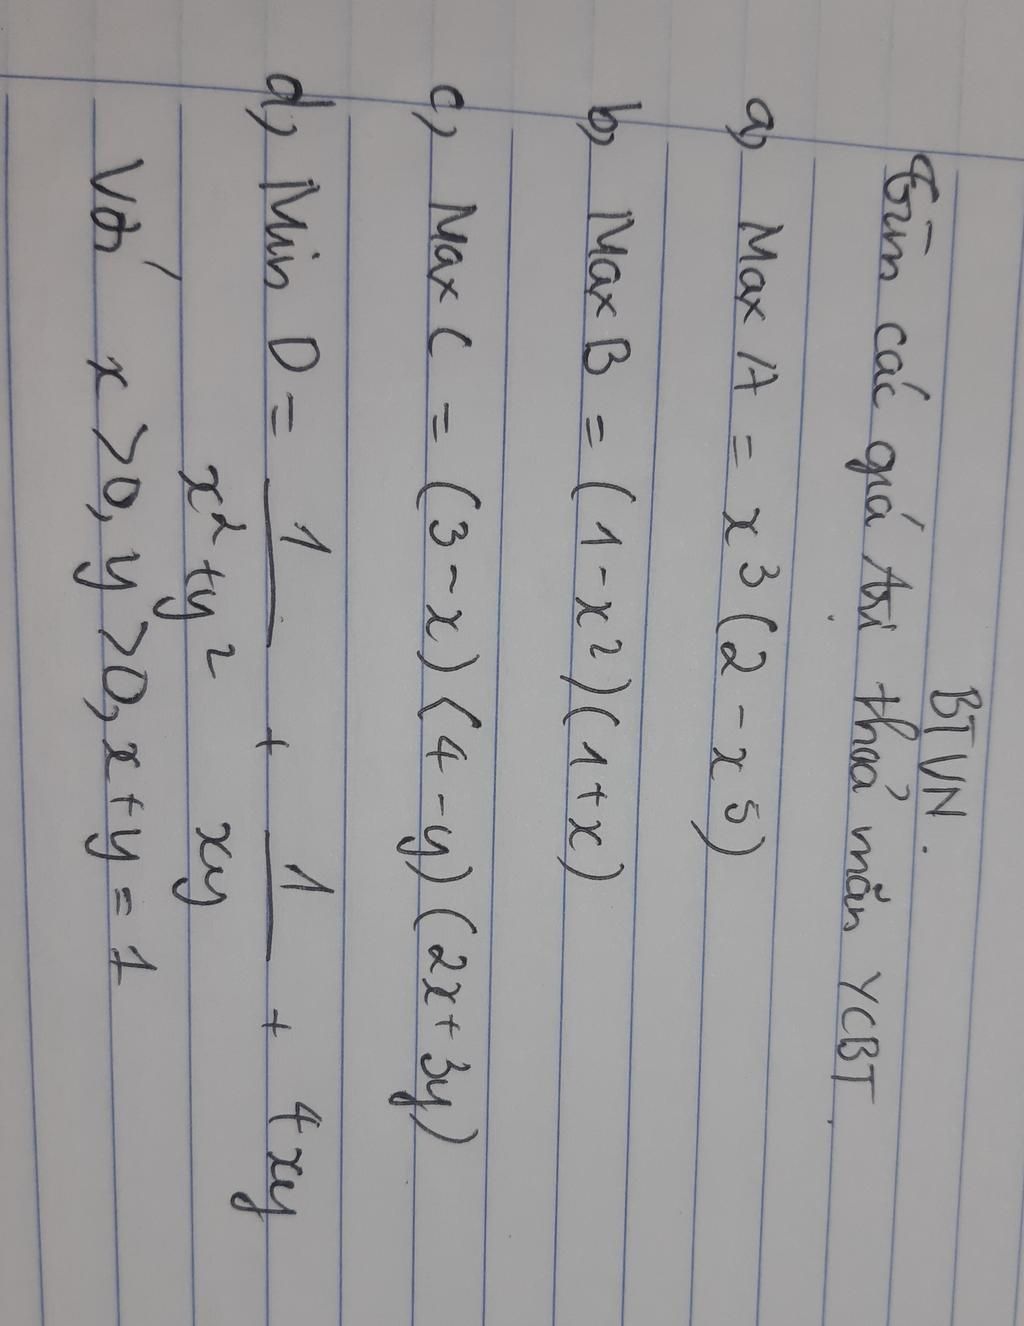 BTVN.
Tìm các giá trị thoả mãn YCBT.
a, Max A = x³(2 - x⁵)
b, Max B = (1 - x²)(1 + x)
c, Max C = (3 - x)(4 - y)(2x + 3y)
d, Min D = 1/(x² + y²) + 1/(xy) + 4xy
Với x > 0, y > 0, x + y = 1